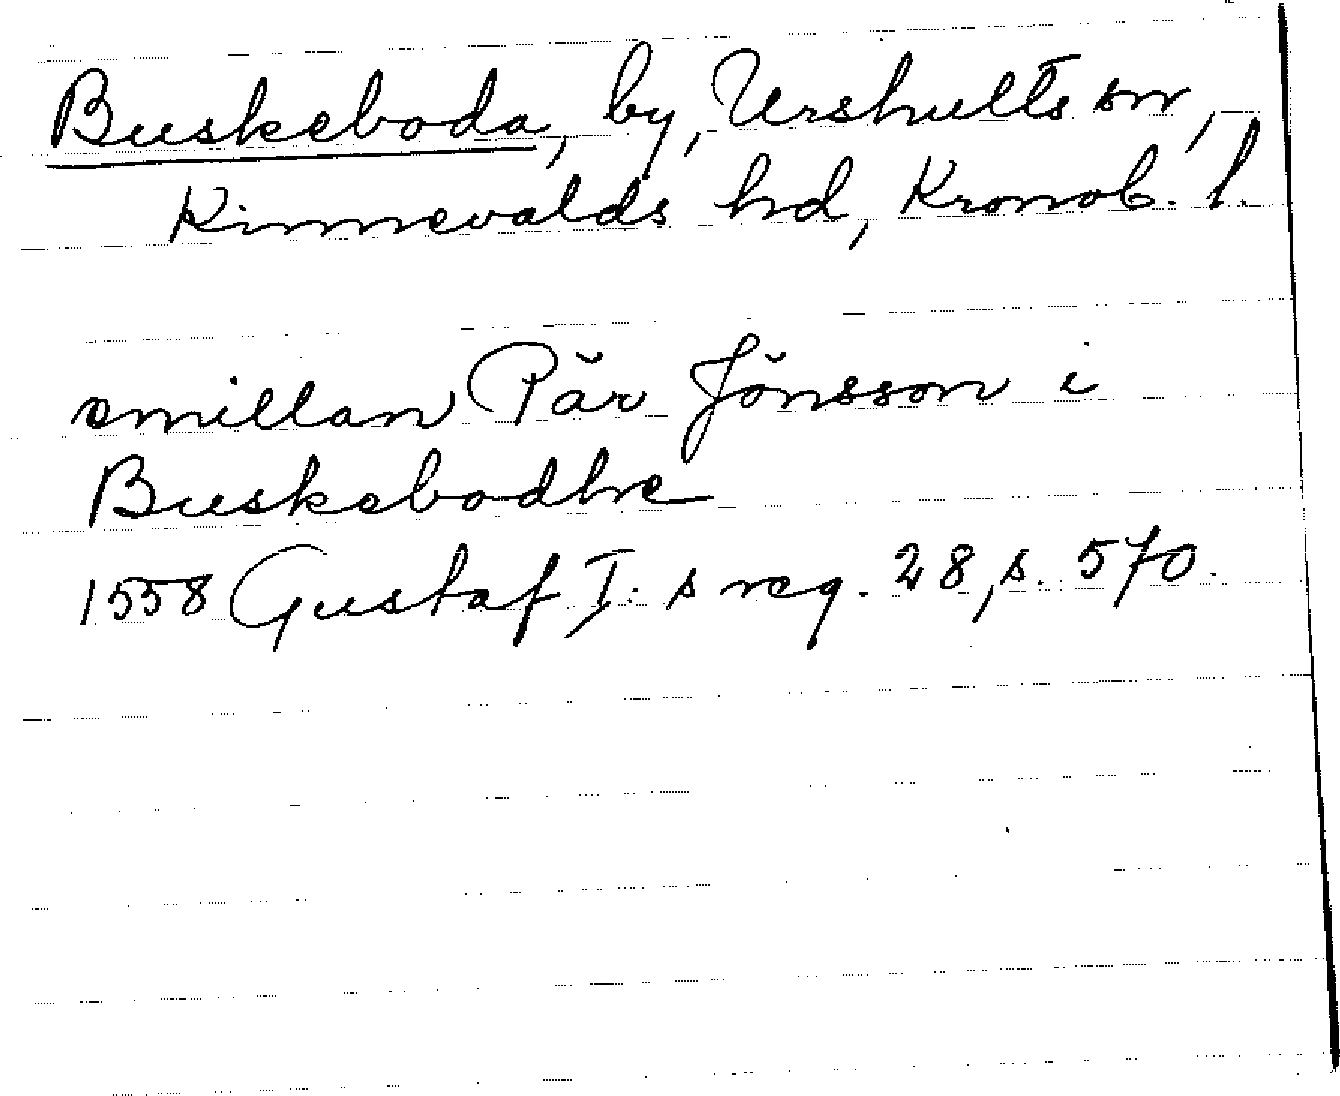 Buskeboda, by, Urshults sn,
Kinnevalds hd, Kronob. l.
emillan Pär Jönsson i
Buskebodhe
1558 Gustaf I. s reg. 28, s. 570.